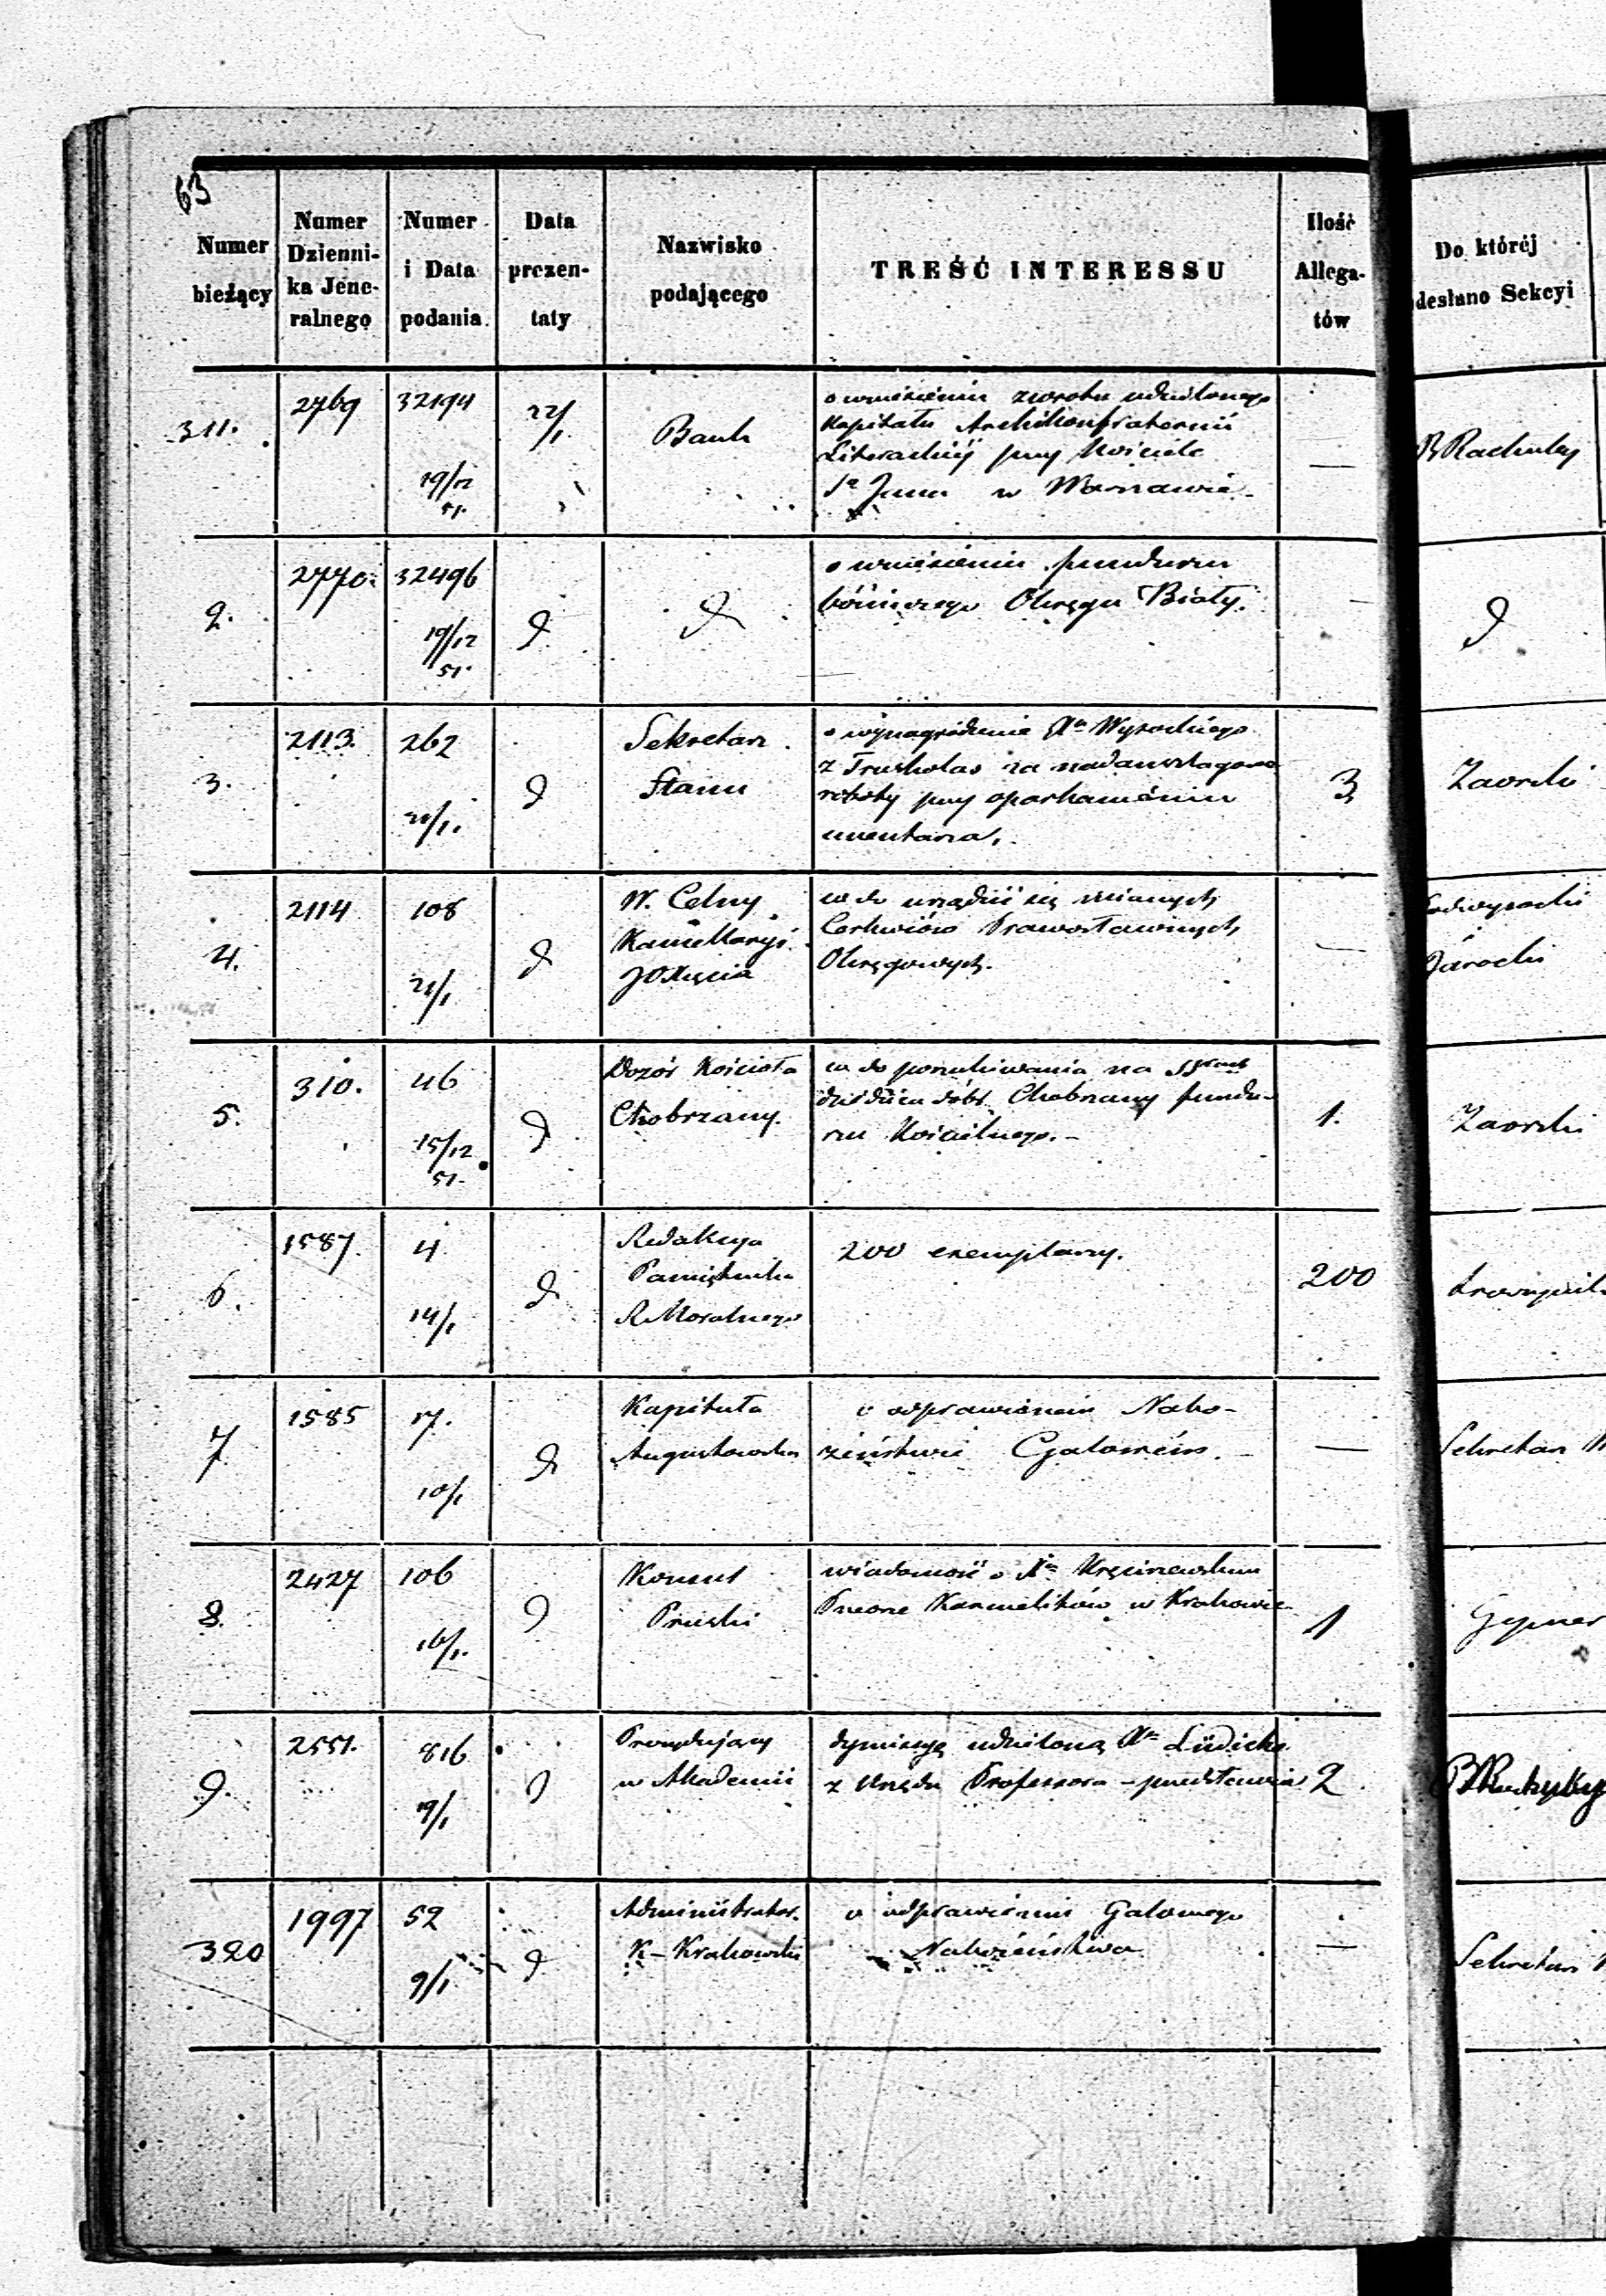 63
Numer bieżący
Numer Dzienni-ka Jene-ralnego
Numer i Data podania
Data prezen-taty
Nazwisko podającego
TREŚĆ INTERESSU
Ilość Allega-tów
Do któréj
desłano Sekcyi
311. 2769 32194 19/12 51. 22/1. Bank
o wniesieniu zwrotu udzielonego
Kapitału Archikonfraternii
Literackiéj przy Kościele
Sgo Jana w Warszawie
—
2. 2770. 32496 19/12 51. d d
o wniesieniu funduszu
bóżniczego Okręgu Biały.
—
d
3. 2113. 262 21/1. d
Sekretarz
Stanu
o wynagrodzenie Xa Wysockiego
z Truskolas za
roboty przy oparkanieniu
cmentarza,
3
Zaorski
4. 2114 108 21/1 d
W. Celny
Kancellaryi
JOXięcia
co do
Cerkwiów Prawosławnych
Okręgowych.
—
Jarocki
5. 310. 46 15/12 51. d
Dozór Kościoła
Chobrzany.
co do poszukiwania na
dziedzica dóbr Chobrzany fundu-
szu Kościelnego.-
1.
Zaorski
6. 1587. 4 14/1 d
Redakcya
Pamiętnika
R Moralnego
200 exemplarzy.
200
7 1585 17. 10/1 d
Kapituła
Augustowska
o odprawionem Nabo-
żeństwie Galowém.
—
Sekretarz
8. 2427 106 16/1. d
Konsul
Pruski
wiadomość o Xu
Przeorze Karmelitów w Krakowie
1
9. 2551. 816 19/1 d
Prezydujący
w Akademii
dymissyę udzieloną Xu Lüdicke
z Urzędu Professora - przedstawia
2
320 1997 52 9/1 d
Administrator.
K-Krakowski
o odprawieniu Galowego
Nabożeństwa
—
Sekretarz